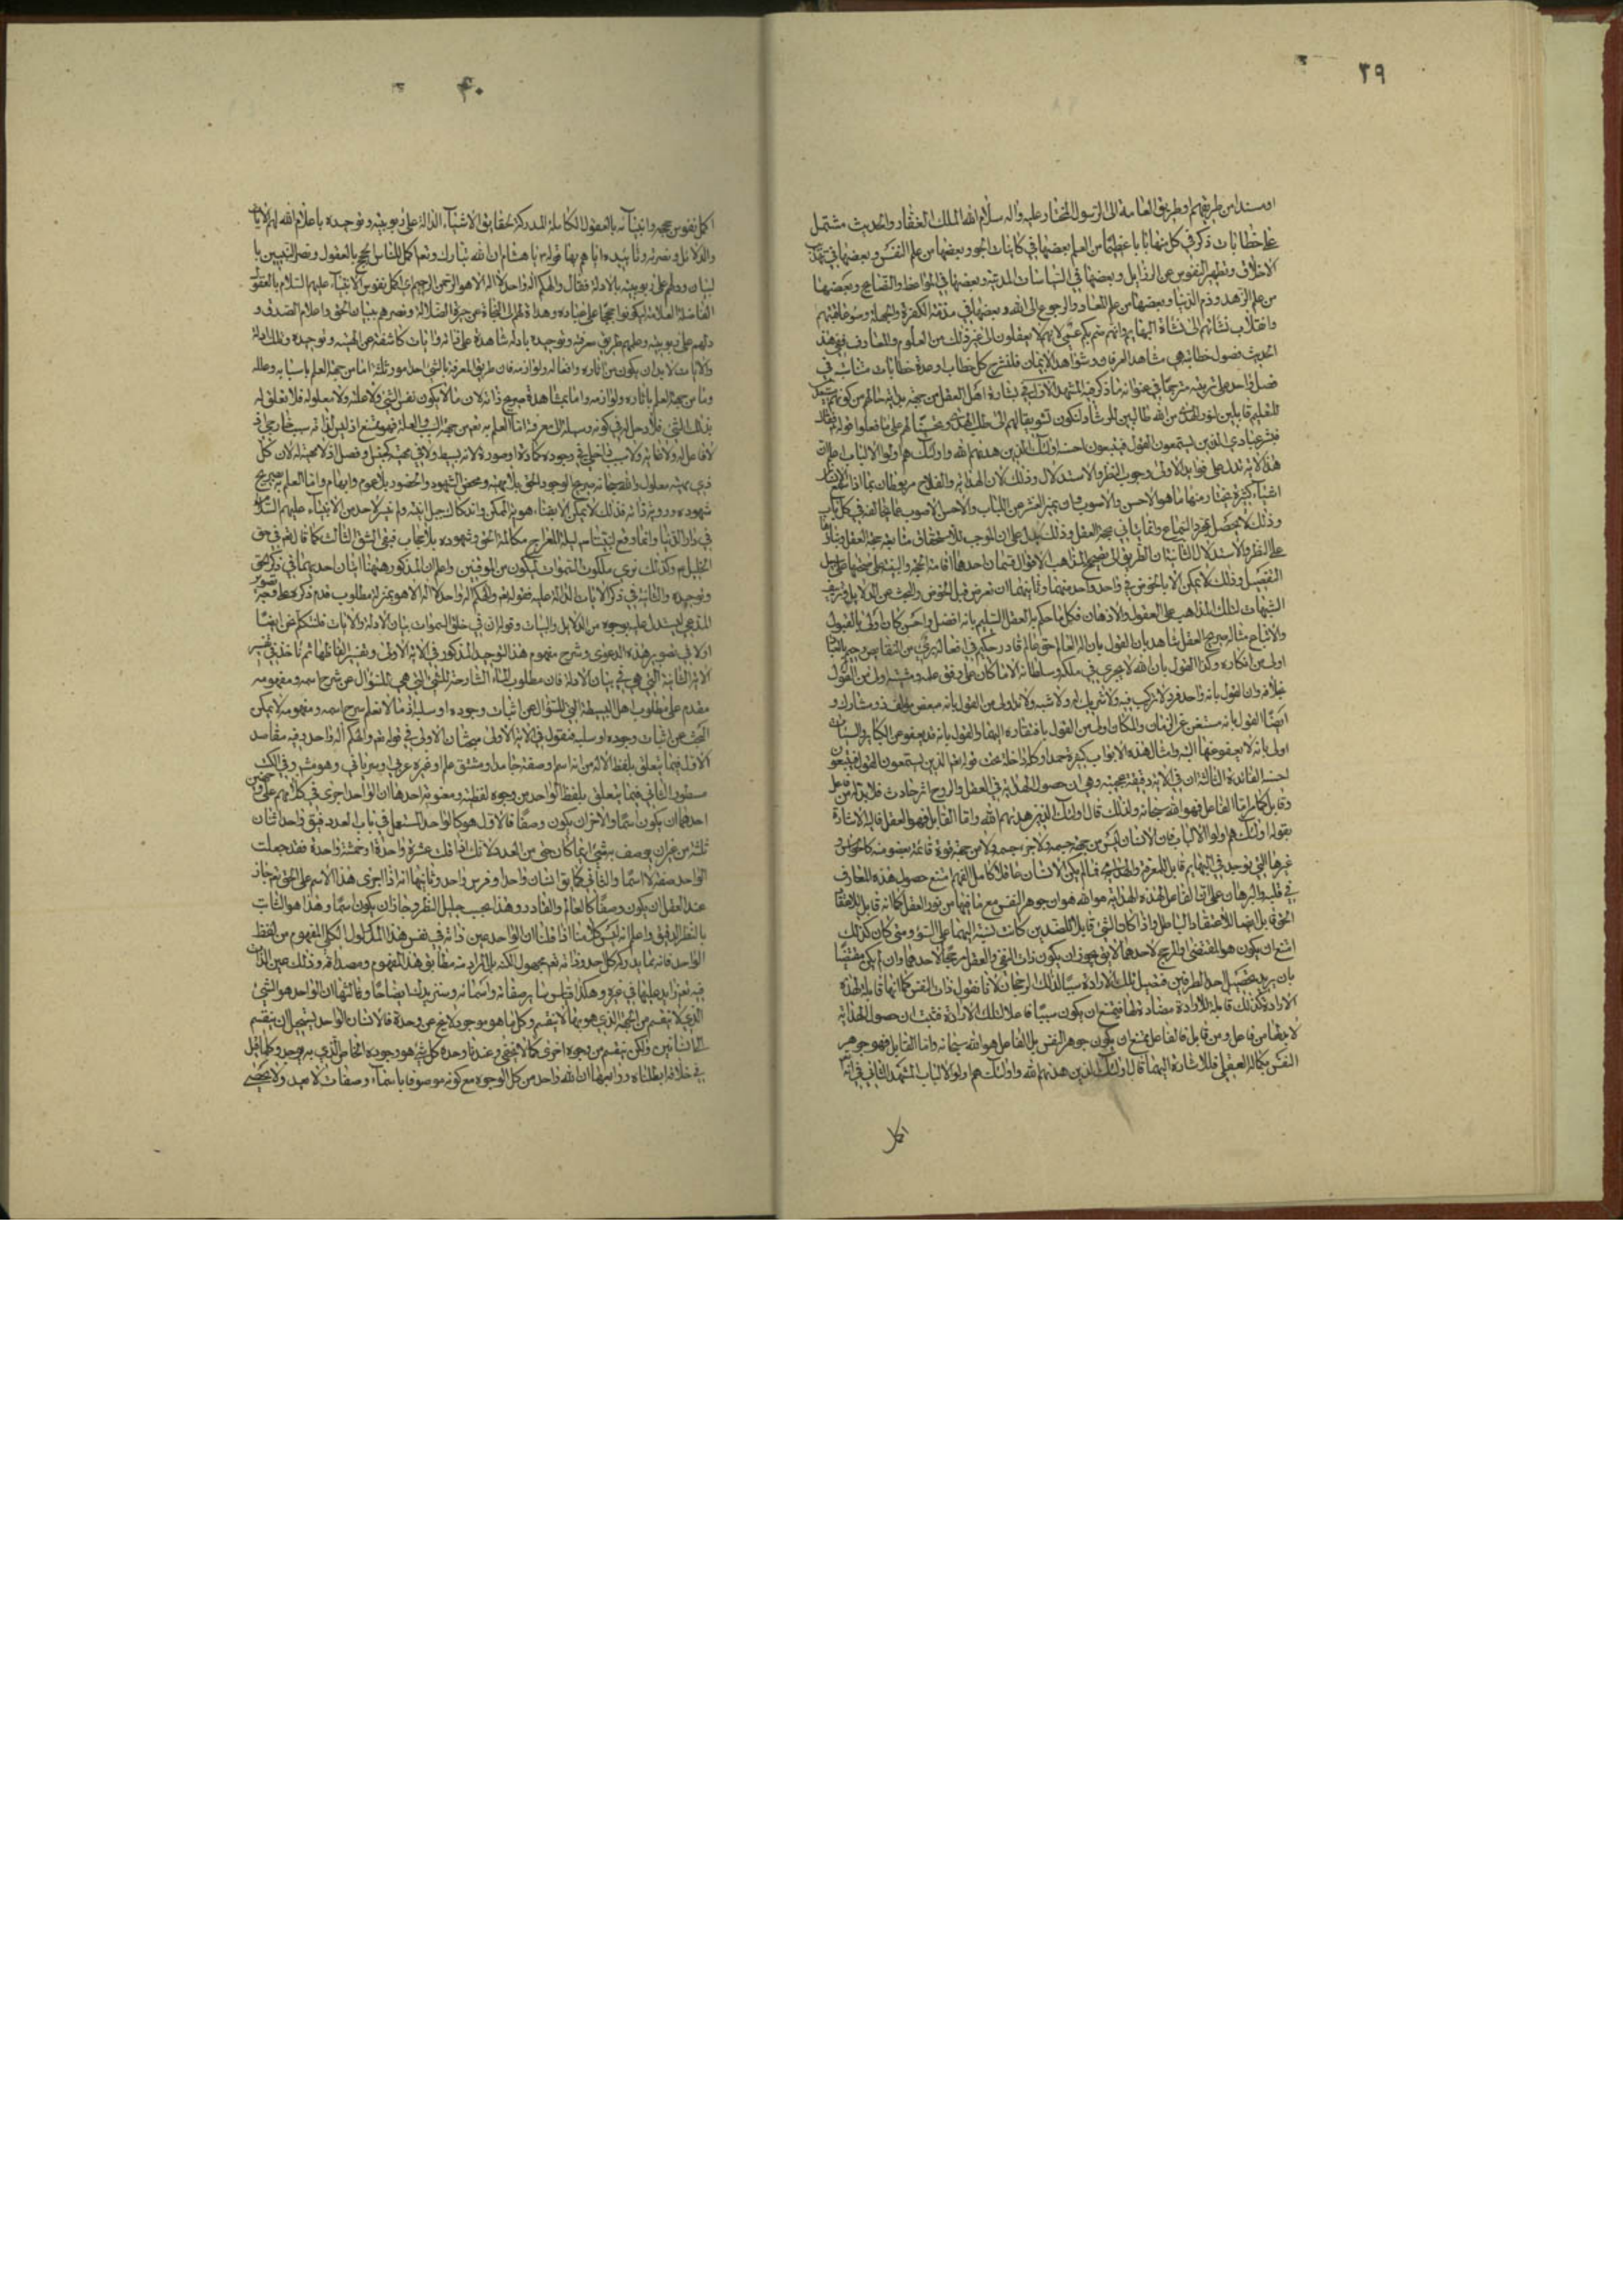 ٣٩
او مسندا من طريقهم او طريق العامة الى الرسول المختار عليه واله سلام الله الملك الغفار والحديث مشتمل
على خطابات ذكر في كل منها بابا عظيما من العلم بعضها في كائنات الجو وبعضها من علم النفس وبعضها في تهذيب
الاخلاق وتطهير النفوس عن الرذايل وبعضها في السياسات المدنية وبعضها في المواعظ والنصايح وبعضها
من علم الزهد وذم الدنيا وبعضها من علم المعاد والرجوع الى الله وبعضها في مذمة الكفرة والجهلة وسوء عاقبتهم
وانقلاب نشاتهم الى نشاة البهايم وانهم صم بكم عمى لانهم لا يعقلون الى غير ذلك من العلوم والمعارف ففى هذا
الحديث فصول خطابية هي مشاهد العرفان وشواهد الايمان فلنشرح كل خطاب او عدة خطابات متناسبة في
فصل واحد على تربيته مترجما في عنوانه ما ذكر فيه المشهد الاول في بشارة اهل العقل من حجة
للتعليم قابلين لنور الهدى من الله طالبين للرشاد لتكون تشويقا لهم الى طلب الهدى
فبشر عبادى الذين يستمعون القول فيتبعون احسنه اولئك الذين هديهم الله واولئك هم اولوا الالباب اعلم ان
هذه الاية تدل على فوايد الاولى وجوب النظر والاستدلال وذلك لان الهداية والفلاح مربوطان بما اذا سمع الانسان
اشياء كثيرة يختار منها ما هو الاحسن والاصوب
وذلك لا يحصل بمجرد السماع
على النظر والاستدلال الثانية ان الطريق الى تصحيح المذاهب والاقوال قسمان احدهما اقامة الحجة والبينة على صحتها على سبيل
التفصيل وذلك لا يمكن الا بالخوض في واحد واحد منها وثانيهما ان نعرض قبل الخوض والبحث عن الدلايل وتزييف
الشبهات تلك المذاهب على العقول والاذهان فكل ما حكم به العقل السليم بانه افضل واحسن كان اولى بالقبول
والاتباع مثاله صريح العقل شاهد بان القول بان اله العالم حق عالم قادر حكيم في افعاله برى من النقايص
اولى من انكاره وكذا القول بان الله لا يجرى في ملكه وسلطانه الا ما كان على وفق علمه ومشيته اولى من القول
بخلافه وان القول بانه واحد فرد لا تركيب فيه ولا شريك له ولا شبه ولا ند اولى من القول بانه مبعض مؤلف ذو مشارك و
ايضا القول بانه مستغن عن الزمان والمكان اولى من القول بافتقاره اليهما والقول بانه قد يعفو عن الكباير والسيئات
اولى بانه لا يعفو عنها البتة وامثال هذه الابواب كثيرة جدا وكلها داخلة تحت قوله تعالى الذين يستمعون القول فيتبعون
احسنه الفائدة الثالثة ان في الاية دقيقة عجيبة وهي ان حصول الهداية في العقل والروح امر حادث فلا بد له من فاعل
وقابل اما الفاعل فهو الله سبحانه ولذلك قال اولئك الذين هديهم الله واما القابل فهو العقل فاليه الاشارة
بقوله اولئك هم اولوا الالباب فان الانسان ليس من جهة جسمه ولا جزء جسمه ولا من جهة قوة قائمة بعضو منه كالحواس و
غيرها التي يوجد في البهايم قابل للمعرفة والهداية فما لم يكن الانسان عاقلا كامل الفهم امتنع حصول هذه المعارف
في قلبه والبرهان على ان الفاعل لهذه الهداية هو الله هو ان جوهر النفس مع ما فيها من نور العقل كما انه قابل للاعتقاد
الحق قابل ايضا للاعتقاد الباطل واذا كان الشئ قابلا للضدين كانت نسبته اليهما على السوء ومتى كان كذلك
امتنع ان يكون هو المقتضى والمرجح لاحدهما لا يق يجوز ان يكون ذات النفس والعقل مرجحا لاحدهما وان لم يكن مقتضيا
بان يريد تحصيل احد الطرفين فتصير تلك الارادة سببا لذلك الرجحان لانا نقول ذات النفس كما انها قابلة لهذه
الارادة كذلك قابلة للارادة مضادة لها فيمتنع ان يكون سببا فاعلا لتلك الارادة فثبت ان حصول الهداية
لا بد لها من فاعل ومن قابل فالفاعل يمتنع ان يكون جوهر النفس بل الفاعل هو الله سبحانه واما القابل فهو جوهر
النفس بكماله العقلى فللاشارة اليهما قال اولئك الذين هديهم الله واولئك هم اولوا الالباب المشهد الثانى في انه
اكمل
۴۰
اكمل نفوس حججه وانبيائه بالعقول الكاملة المدركة لحقايق الاشياء الدالة على ربوبيته وتوحيده باعلام الله لهم الايات
والدلائل ونصرته وتائيده اياهم بها قوله يا هشام ان الله تبارك وتعالى اكمل للناس الحجج بالعقول ونصر النبيين با
لبيان ودلهم على ربوبيته بالادلة فقال والهكم اله واحد لا اله الا هو الرحمن الرحيم اى اكمل نفوس الانبياء عليهم السلام بالعقول
الفاضلة العلامة ليكونوا حججا على عباده وهداة لهم الى النجاة عن حيرة الضلالة ونصرهم ببيان الحق واعلام الصدق و
دلهم على ربوبيته وعلمهم طريق معرفته وتوحيده بادلة شاهدة على ذاته وايات كاشفة عن الهيته وتوحيده وتلك الادلة
والايات لا بد ان يكون من اثاره وافعاله ولوازمه فان طريق المعرفة بالشئ احد امور ثلثة اما من جهة العلم باسبابه وعلله
واما من جهة العلم باثاره ولوازمه واما بمشاهدة صريح ذاته لان ما لا يكون نفس الشئ ولا علته ولا معلوله فلا تعلق له
بذلك الشئ فلا دخل له في كونه وسيلة الى معرفته اما العلم به تعالى من جهة السبب والعلة فهو ممتنع اذ ليس لذاته سبب خارجى
لا فاعل له ولا غاية ولا سبب داخلى في وجوده كمادة او صورة لانه بسيط ولا في مهيته كجنس وفصل اذ لا مهية له لان كل
ذى مهية معلول والله سبحانه صريح الوجود الحق بلا مهية ومحض الشهود والحضور بلا عموم وابهام واما العلم به بصريح
شهوده ورؤية ذاته فذلك لا يمكن الا بفناء هوية الممكن واندكاك جبل انيته ولم يتيسر لاحد من الانبياء عليهم السلام
في دار الدنيا وانما وقع لنبينا ص ليلة المعراج مكالمة الحق وشهوده بلا حجاب فبقى الشق الثالث كما قال تعالى في حق
الخليل ع وكذلك نرى ملكوت السموات ليكون من الموقنين واعلم ان المذكور ههنا ايتان احديهما في ذكر الحق
وتوحيده والثانية في ذكر الايات الدالة عليه فقوله تعالى والهكم اله واحد لا اله الا هو بمنزلة مطلوب قدم ذكره على وجه تصوير
المدعى ليستدل عليه بوجوه من الدلايل والبينات وقوله ان في خلق السموات بيان الادلة والايات فلنتكلم نحن ايضا
اولا في تصوير هذه الدعوى وشرح مفهوم هذا التوحيد المذكور في الاية الاولى وتفسير الفاظها ثم ناخذ في تفسير
الاية الثانية التي هو في بيان الادلة فان مطلوب الماء الشارحة للشئ التي هي للسؤال عن شرح اسمه ومفهومه
مقدم على مطلوب اهل البسيطة التي للسؤال عن اثبات وجوده او سلبه اذ ما لا نعلم شرح اسمه ومفهومه لا يمكن
البحث عن اثبات وجوده او سلبه فنقول في الاية الاولى مبحثان الاولى في قوله تعالى والهكم اله واحد وفيه مقاصد
الاول فيما يتعلق بلفظ الاله من انه اسم او صفة جامد او مشتق علم او غيره عربى او سريانى وهو مشهور في الكتب
مسطور الثانى فيما يتعلق بلفظ الواحد من وجوه لفظية ومعنوية احدها ان الواحد اجرى في كلامهم على وجهين
احدهما ان يكون اسما والاخر ان يكون وصفا فالاول هو كالواحد المستعمل في باب العدد فيق واحد اثنان
ثلثة من غير ان يوصف به شئ انما كان جزء من العدد لانك اذا قلت عشرة واحدة او خمسة واحدة فقد جعلت
الواحد صفة لا اسما والثانى كما يق انسان واحد وفرس واحد وثانيها انه اذا اجرى هذا الاسم على الحق تعالى جاز
عند العقل ان يكون وصفا كالعالم والقادر وهذا بحسب جليل النظر وجاز ان يكون اسما وهذا هو الثابت
بالنظر الدقيق واعلم انه ليس كلامنا اذا قلنا ان الواحد عين ذاته في نفس هذا المدلول الكلى المفهوم من لفظ
الواحد فانه مما يدركه كل احد وذاته تعالى مجهول الكنه بل المراد منه مطابق هذا المفهوم ومصداقه وذلك عين الذات
فيه تعالى زايد عليها في غيره وهكذا قياس ساير صفاته واسمائه وسنزيدك ايضاحا وثالثها ان الواحد هو الشئ
الذى لا ينقسم من الجهة التي هو بها لا ينقسم وكل ما هو موجود لا يخ عن وحدة فالانسان الواحد يستحيل ان ينقسم
الى انسانين ولكن ينقسم من وجوه اخرى كما لا يخفى وعندنا وحدة كل شئ هو وجوده الخاص الذى به يوجد وكلما قيل
في خلافه ابطلناه ورابعها ان الله واحد من كل الوجوه مع كونه موصوفا باسماء وصفات لا تعد ولا تحصى